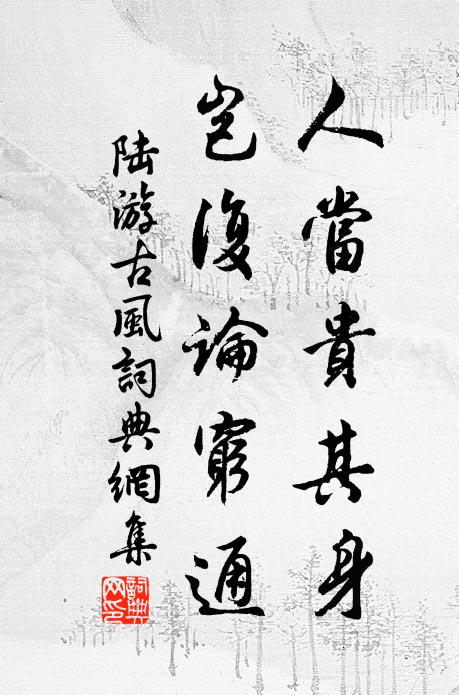 人當貴其身
豈復論窮通
陸游古風詞典網集
詞典网印